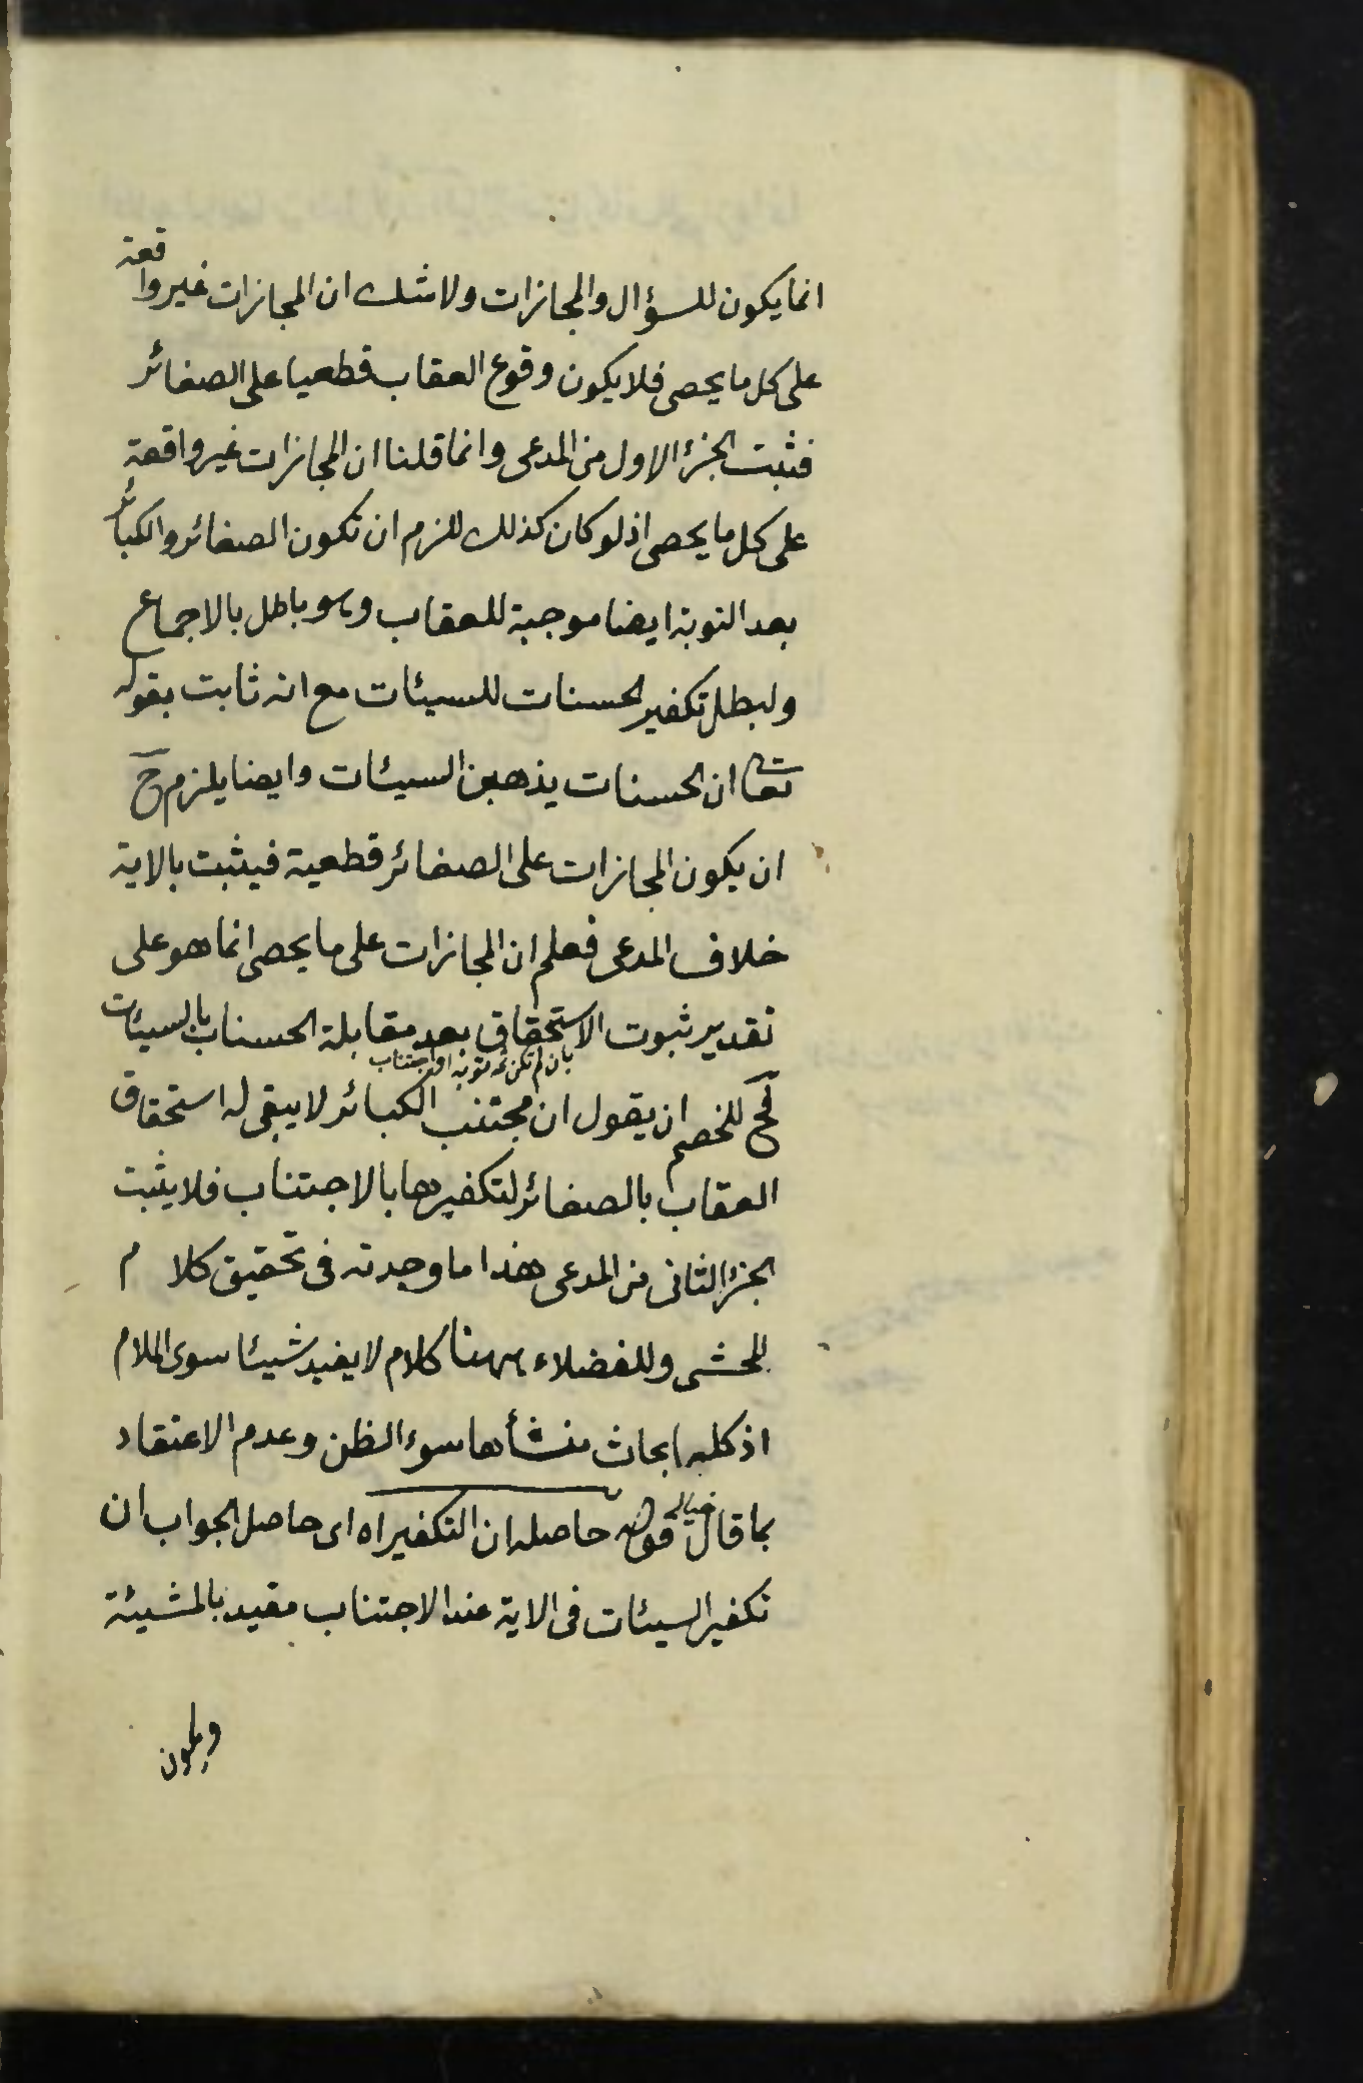 انما يكون للسؤال والمجازات ولا شك ان المجازات غير واقعة
على كل ما يحصى فلا يكون وقوع العقاب قطعيا على الصغائر
فثبت الجزء الاول من المدعى وانما قلنا ان المجازات غير واقعة
على كل ما يحصى اذ لو كان كذلك للزم ان تكون الصغائر والكبائر
بعد التوبة ايضا موجبة للعقاب وهو باطل بالاجماع
ولبطل تكفير الحسنات للسيئات مع انه ثابت بقوله
تعا ان الحسنات يذهبن السيئات وايضا يلزم ح
ان يكون المجازات على الصغائر قطعية فيثبت بالاية
خلاف المدعى فعلم ان المجازات على ما يحصى انما هو على
تقدير ثبوت الاستحقاق بعد مقابلة الحسنات بالسيئات
بان لم تكن توبة او اجتناب
فح للخصم ان يقول ان مجتنب الكبائر لا يبقى له استحقاق
العقاب بالصغائر لتكفيرها بالاجتناب فلا يثبت
الجزء الثاني من المدعى هذا ما وجدته في تحقيق كلام
المحشى وللفضلاء ههنا كلام لا يفيد شيئا سوى الملام
اذ كله ابحاث منشأها سوء الظن وعدم الاعتقاد
بما قال خيالى قوله حاصله ان التكفير اه اى حاصل الجواب ان
تكفير السيئات فى الاية عند الاجتناب مقيد بالمشيئة